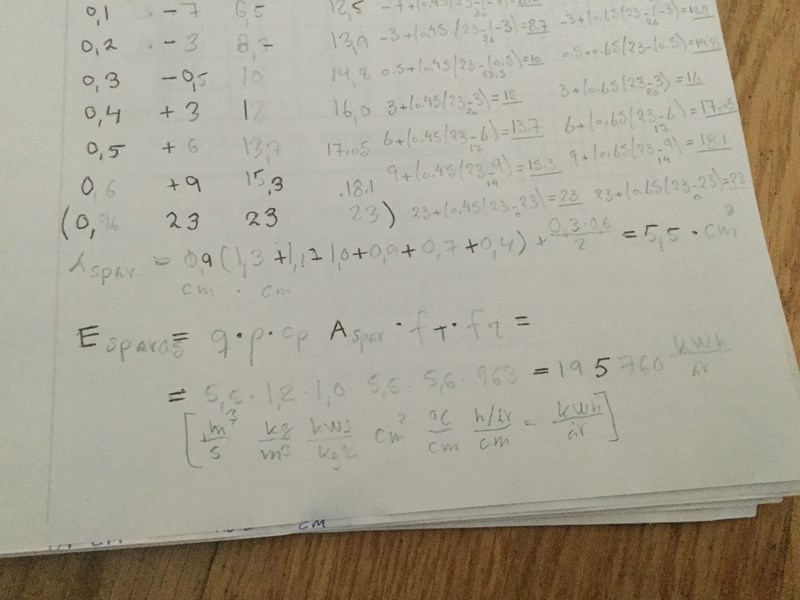 0,1 -7 6,5 12,5
0,2 -3 8,7 13,9 -3+(0.45(23-(-3)=8.7 -3+(0.65(23-(-3)=13.9
26 26
0,3 -0,5 10 14,8 0.5+(0.45(23-(0.5)=10 0.5+0.65(23-(0.5)=14.8
23,5
0,4 +3 12 16,0 3+(0.45(23-3)=12 3+(0.65(23-3)=16
20 20
0,5 +6 13,7 17.05 6+(0.45(23-6)=13.7 6+(0.65(23-6)=17.05
17 17
0,6 +9 15,3 .18.1 9+(0.45(23-9)=15.3 9+(0.65(23-9)=18.1
14 14
(0,96 23 23 23) 23+(0.45(23-23)=23 23+(0.65(23-23)=23
0 0
Aspar = 0,9(1,3+1,1+1,0+0,9+0,7+0,4)+ 0,3·0,6/2 = 5,5·cm²
cm · cm
E sparas = q·p·cp Aspar·fT·fτ =
= 5,5·1,2·1,0·5,5·5,6·963 = 195760 kWh/år
[m³/s kg/m³ kWs/kg°C cm² °C/cm h/år/cm = kWh/år]
cm